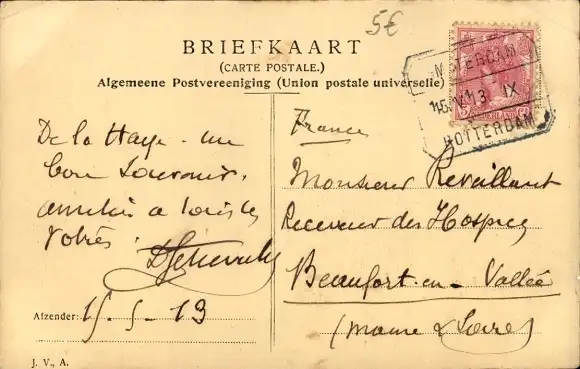 5€
BRIEFKAART
(CARTE POSTALE.)
Algemeene Postvereeniging (Union postale universelle)
AMSTERDAM
15.V.13 IX
ROTTERDAM
NEDERLAND
De la Haye - un
bon Souvenir,
amitiés a tous les
Votres.
Afzender: 15-5-13
J. V., A.
France
Monsieur Revaillant
Receveur des Hospices
Beaufort-en-Vallée
(Maine & Loire)